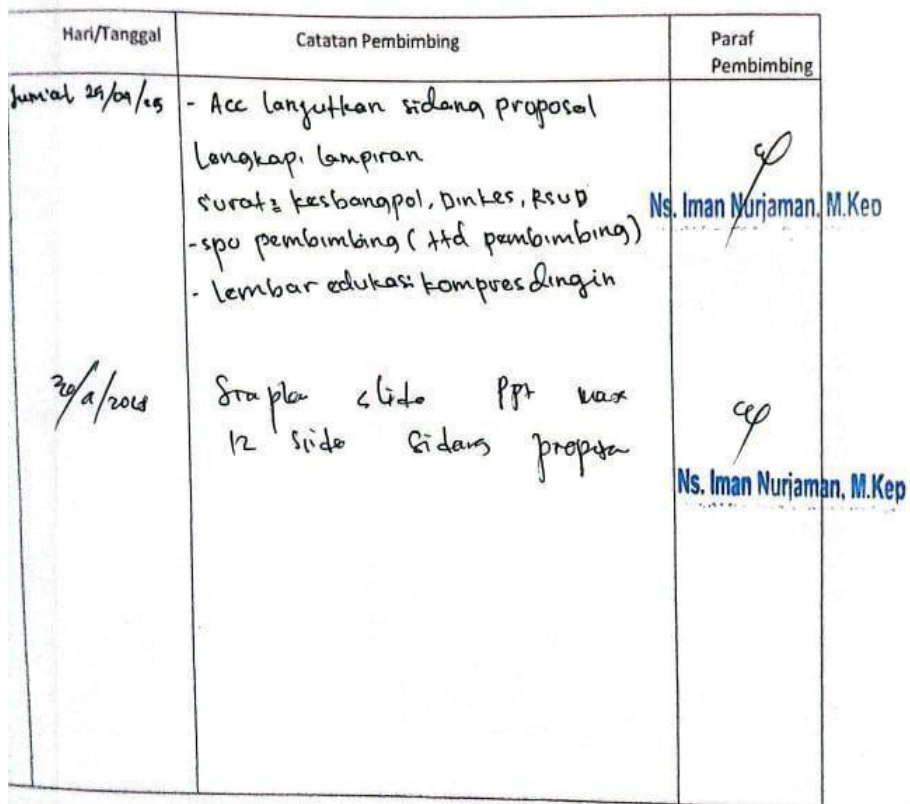 Hari/Tanggal
Catatan Pembimbing
Paraf
Pembimbing
Jum'at
- Acc lanjutkan sidang proposal
Lengkapi lampiran
surat: kesbangpol, Dinkes, RSUD
- spo pembimbing (ttd pembimbing)
- Lembar edukasi kompres dingin
Ns. Iman Nurjaman, M.Kep
slide PPt max
12 slide sidang
Ns. Iman Nurjaman, M.Kep